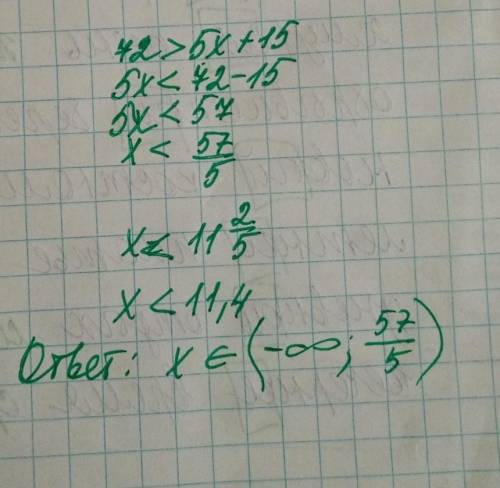 72 > 5x + 15
5x < 72 - 15
5x < 57
x < 57/5
x < 11 2/5
x < 11,4
Ответ: x ∈ (-∞; 57/5)